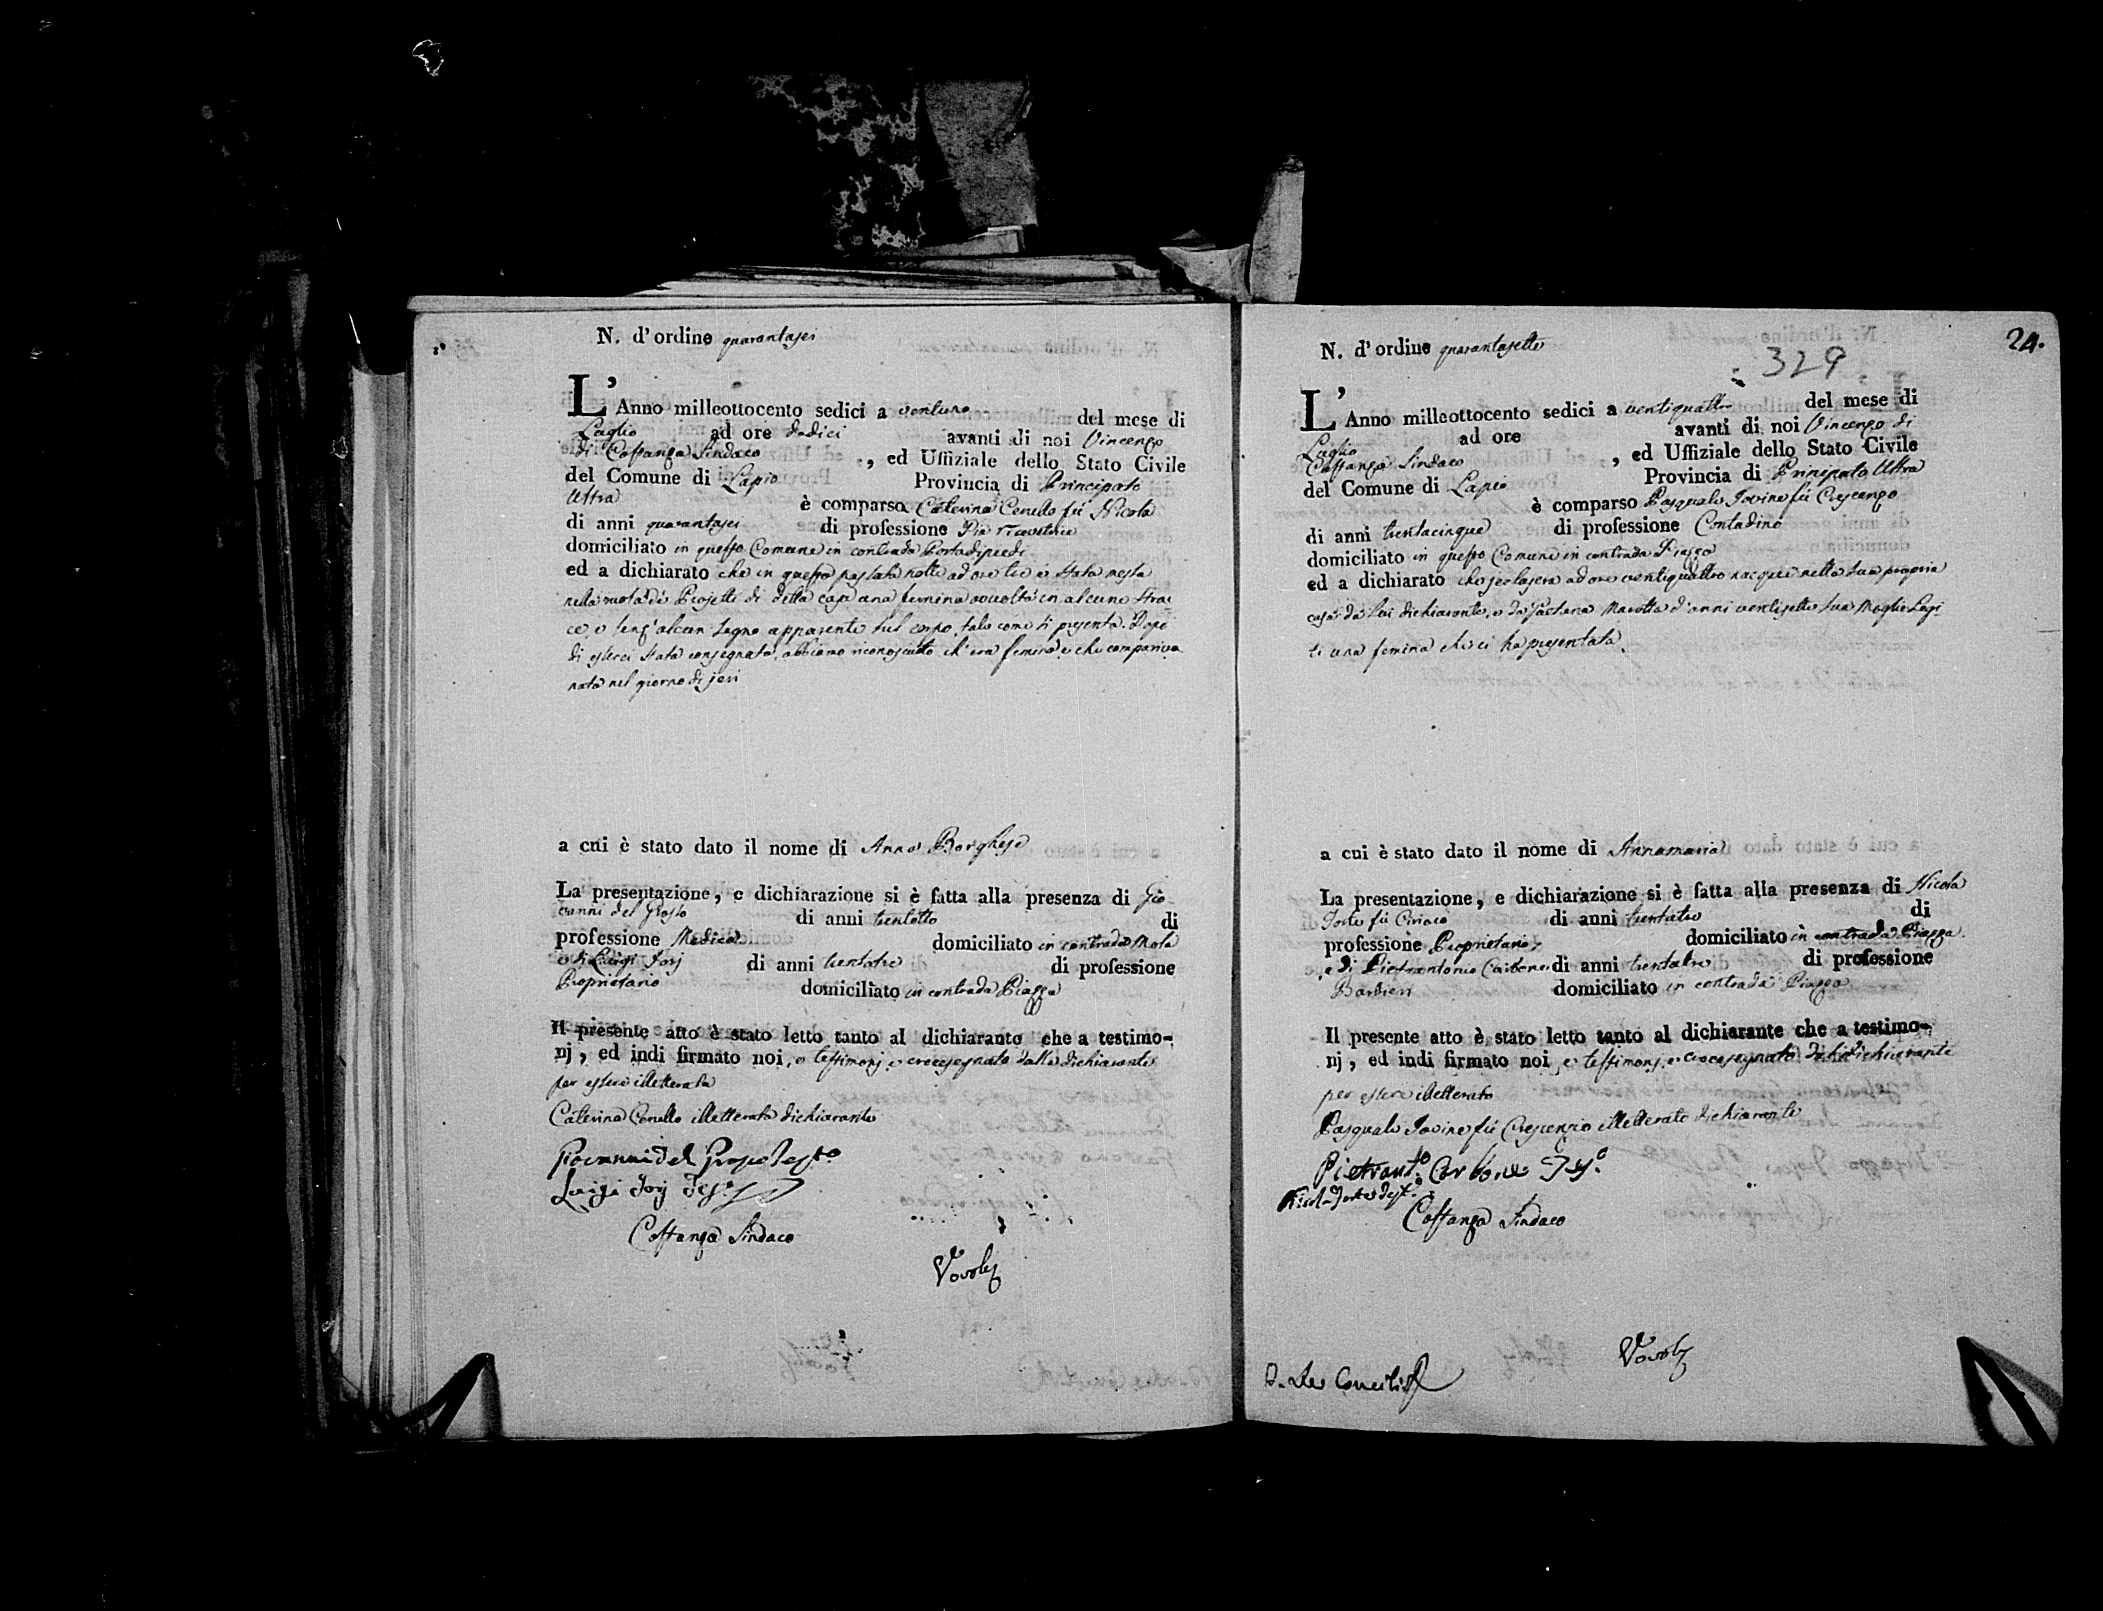 N. d'ordine quarantasei
L'Anno milleottocento sedici a ventuno del mese di
Luglio ad ore dodici avanti di noi Vincenzo
di Costanza Sindaco , ed Uffiziale dello Stato Civile
del Comune di Lapio Provincia di Principato
Ultra è comparsa Caterina Conello fù Nicola
di anni quarantasei di professione Pia ricevitrice
domiciliato in questo Comune in contrada Portadipiedi
ed a dichiarato che in questa passata notte ad ore tre è stata messa
nella ruota de' Projetti di detta casa una femina avvolta in alcune strac
ce, e senz'alcun segno apparente sul corpo, tale come si presenta. Dopo
di esserci stata consegnata, abbiamo riconosciuto ch'era femina e che compariva
nata nel giorno di jeri
a cui è stato dato il nome di Anna Borghese
La presentazione, e dichiarazione si è fatta alla presenza di Gio
vanni del Grosso di anni trentotto di
professione Medico domiciliato in contrada Mola
e di Luigi Forj di anni trentatre di professione
Proprietario domiciliato in contrada Piazza
Il presente atto è stato letto tanto al dichiarante che a testimo-
nj, ed indi firmato noi, e testimonj, e crocesegnato dalla dichiarante
per essere illetterata
Caterina Conello illetterata dichiarante
Giovanni del Grosso Test.o
Luigi Forj Tes.o
Costanza Sindaco
N. d'ordine quarantasette
24.
329
L'Anno milleottocento sedici a ventiquattro del mese di
Luglio ad ore avanti di noi Vincenzo di
Costanza Sindaco , ed Uffiziale dello Stato Civile
del Comune di Lapio Provincia di Principato Ultra
è comparso Pasquale Iovine fù Crescenzo
di anni trentacinque di professione Contadino
domiciliato in questo Comune in contrada Piazza
ed a dichiarato che jeri la sera ad ore ventiquattro nacque nella sua propria
casa da lui dichiarante, e da Gaetana Marotta d'anni ventisette sua Moglie Legi
ti una femina che ci ha presentata.
a cui è stato dato il nome di Annamaria
La presentazione, e dichiarazione si è fatta alla presenza di Nicola
Forte fù Ciriaco di anni trentatre di
professione Proprietario, domiciliato in contrada Piazza
e di Pietrantonio Carbone di anni trentatre di professione
Barbieri domiciliato in contrada Piazza
Il presente atto è stato letto tanto al dichiarante che a testimo-
nj, ed indi firmato noi, e testimonj, e crocesegnato dichiarante
per essere illetterato
Pasquale Iovine fù Crescenzio illetterato dichiarante
Pietrant.o Carbone Tes.o
Nicola Forte Test.o
Costanza Sindaco